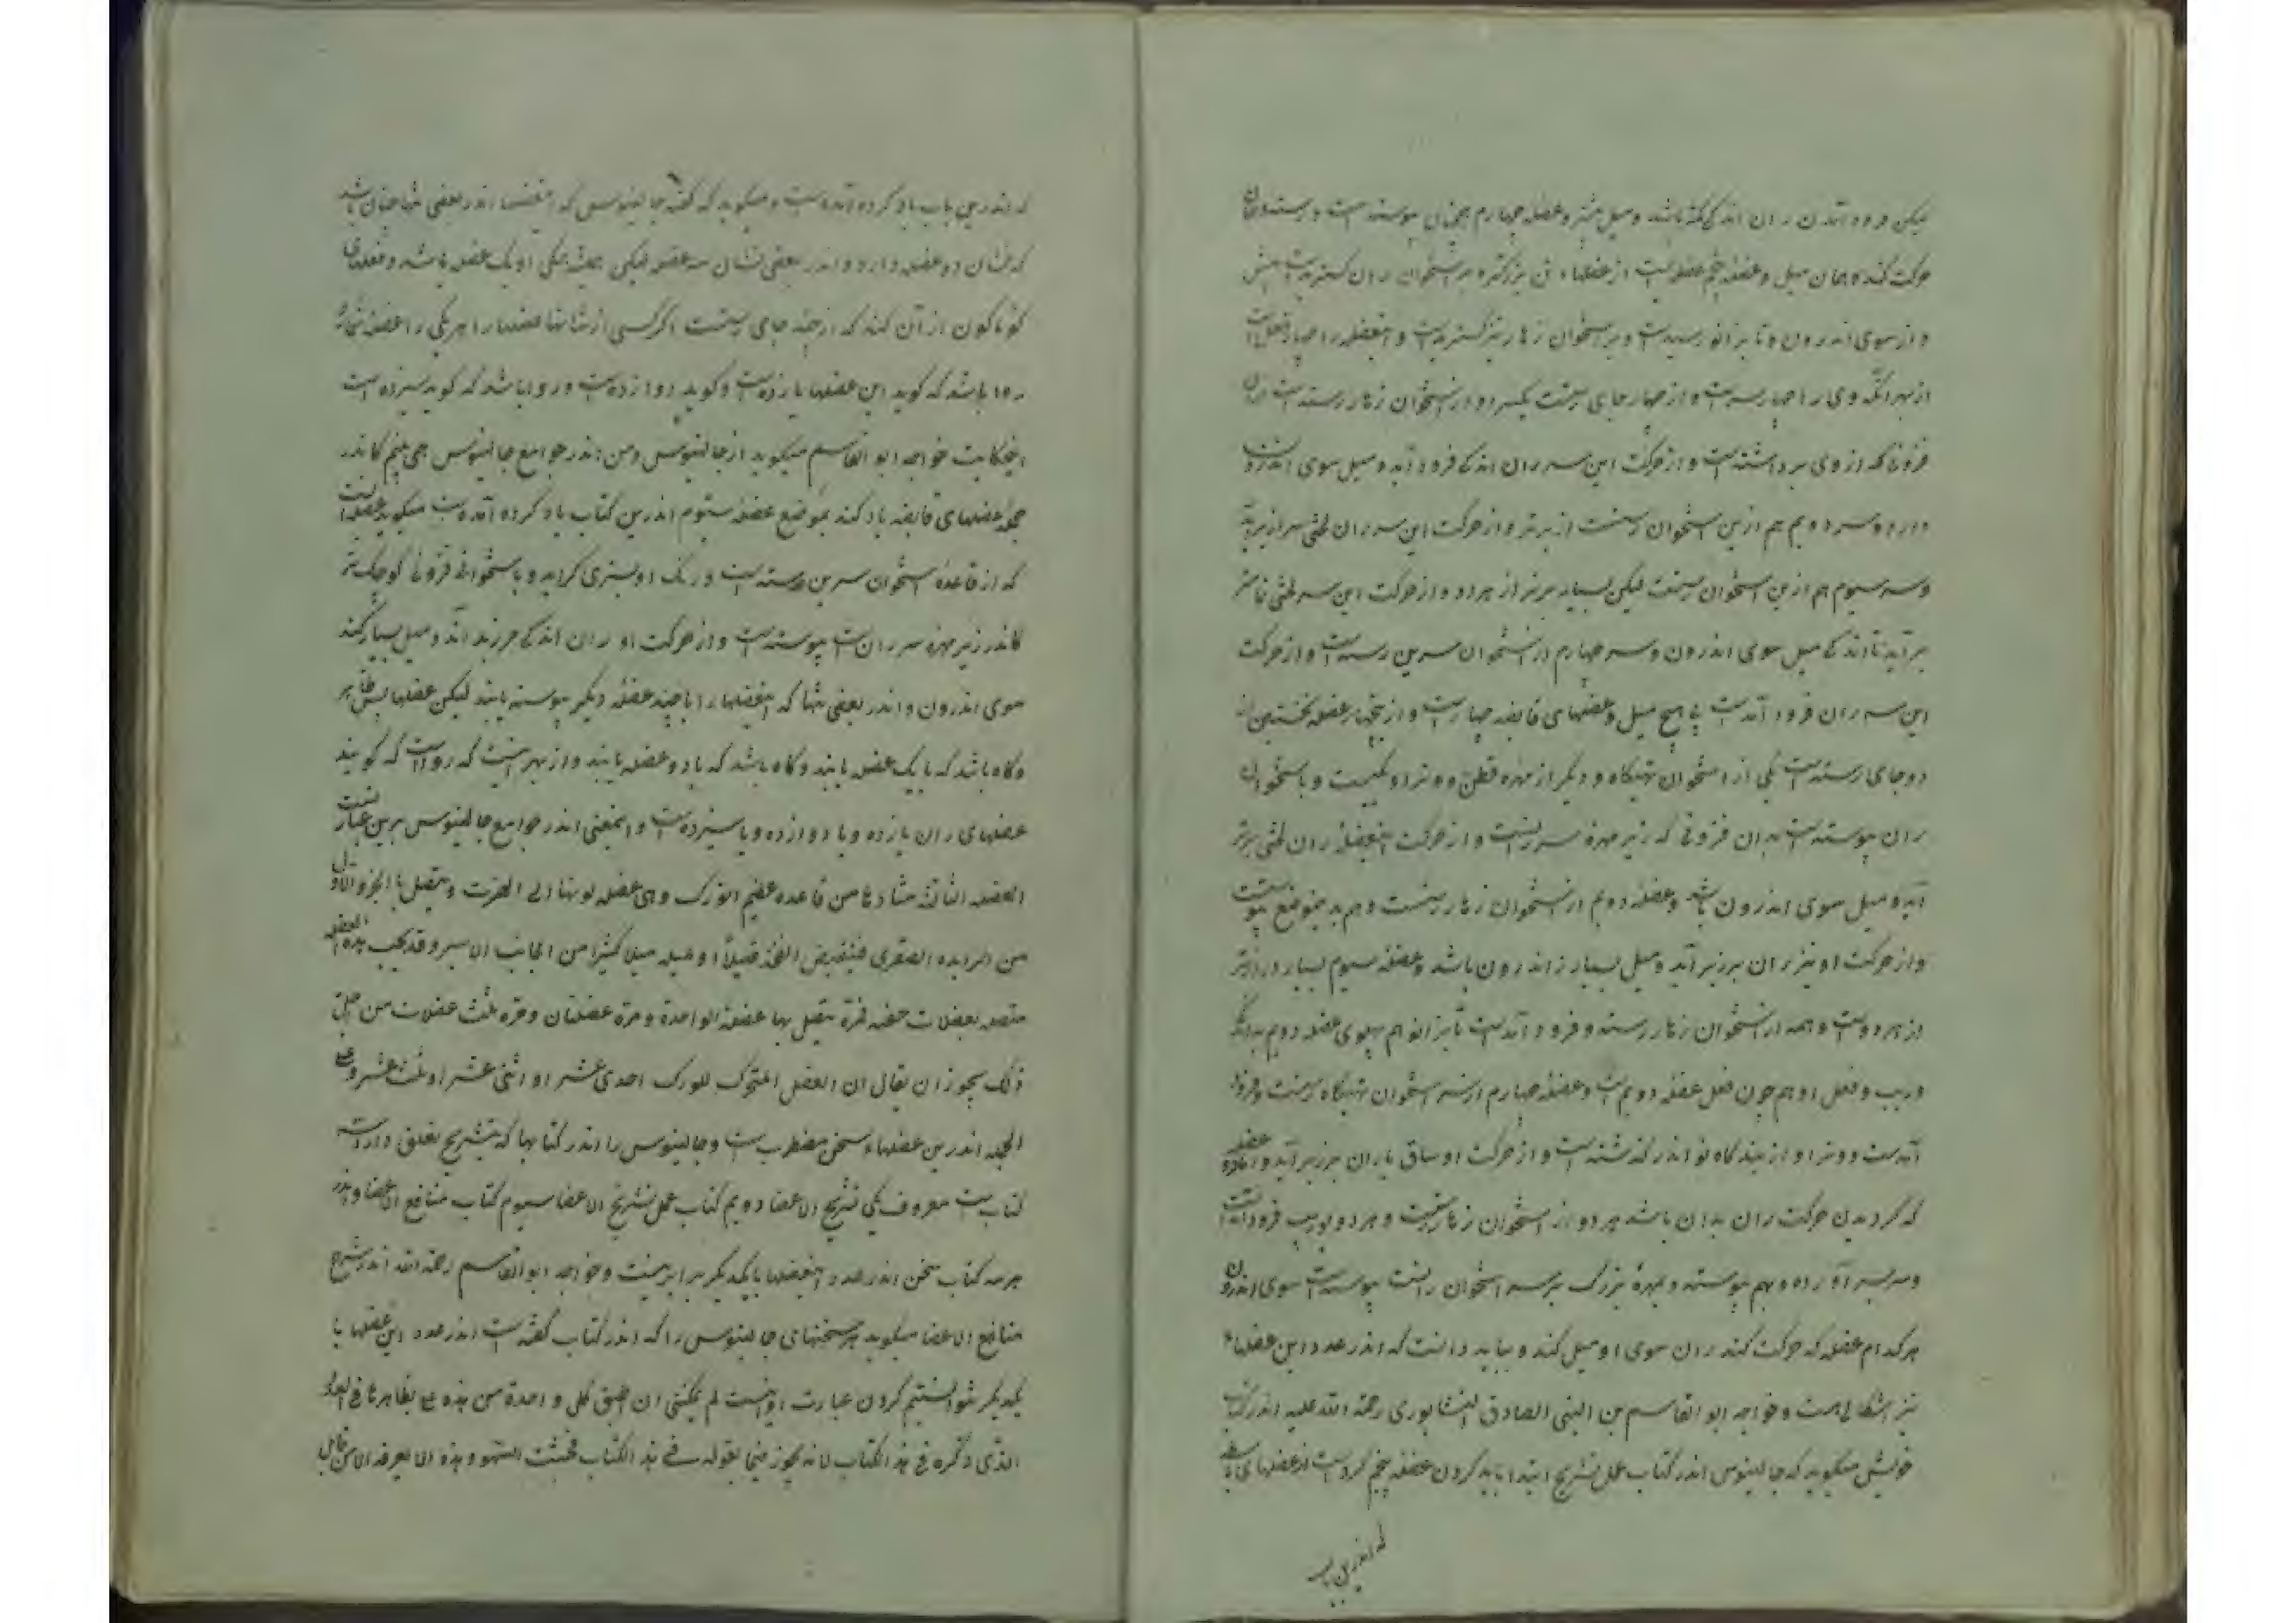 لیکن فرود آمدن ران اندکی کمتر باشد و میل بیشتر و عضله چهارم همچنان پیوسته است و رسته و همان
حرکت کند و همان میل و عضله پنجم عضله‌ایست از عضلهاء تن بزرگتر و بر استخوان ران گسترده است از پیش
و از سوی اندرون و تا بزانو رسیدست و بر استخوان زهار نیز گسترده است و این عضله را چهار فعل است
از بهر آنکه وی را چهار سر است و از چهار جای رستست یکسر او از استخوان زهار رسته است از آن
فزونی که از وی برداشته است و از حرکت این سر ران اندکی فرود آید و میل سوی اندرون
دارد و سر دویم هم ازین استخوان رستست از برتر و از حرکت این سر ران لختی سر از بر آید
و سر سیوم هم ازین استخوان رستست لیکن بسیار برتر از هر دو و از حرکت این سر لختی
بر آید تا اندکی میل سوی اندرون و سر چهارم از استخوان سرین رسته است و از حرکت
این سر ران فرود آمدست بی هیچ میل و عضلهای قابضه چهار است و از پنجهار عضله نخستین از
دو جای رسته است یکی از استخوان تهیگاه و دیگر از مهره قطن و وتر او یکیست و با استخوان
ران پیوسته است بدان فزونی که زیر مهره سر رانست و از حرکت این عضله ران لختی برتر
آید و میل سوی اندرون باشد و عضله دویم از استخوان زهار رستست و هم بدینموضع پیوست
و از حرکت او نیز ران برزبر آید و میل بسیار ز اندرون باشد و عضله سیوم بسیار درازتر
از هر دوست و همه از استخوان زهار رسته و فرود آمدست تا بزانو هم پهلوی عضله دویم بدانکه
وریب و فعل او هم چون فعل عضله دویم است و عضله چهارم از سر استخوان تهیگاه رستست و فرود
آمدست و وتر او از بندگاه زانو اندر گذشته است و از حرکت او ساق با ران برزبر آید و اما دو عضله
که گردیدن حرکت ران بدان باشد هر دو از استخوان زهار رستست و هر دو بوریب فرود آمدست
و سر بسر آورده و بهم پیوسته و بمهره بزرگ بر سر استخوان رانست پیوسته است سوی اندرون
هر کدام عضله که حرکت کند ران سوی او میل کند و بباید دانست که اندر عدد این عضلهاء
نیز اشکالی هست و خواجه ابو القاسم بن النبی الصادق النیشابوری رحمة الله علیه اندر کتاب
خویش میگوید که جالینوس اندر کتاب عمل تشریح ابتدا بیاد کردن عضله پنجم کردست از عضلهای باسطه
که اندرین باب
که اندرین باب یاد کرده آمده است و میگوید که گفته جالینوس که این عضلها اندر بعضی تنها چنان باشد
که نشان دو عضله دارد و اندر بعضی نشان سه عضله لیکن بحقیقت همگی او یک عضله باشد و فعلهای
گوناگون از آن کند که از چند جای رستست اگر کسی از نشانها عضلها را هر یکی را عضله شمارد
روا باشد که گوید این عضلها یازدهست و گوید دوازدهست و روا باشد که گوید سیزده است
اینحکایت خواجه ابو القاسم میگوید از جالینوس و من اندر جوامع جالینوس همی بینم کاندر
جمله عضلهای قابضه یاد کند بموضع عضله سیوم اندرین کتاب یاد کرده آمده است میگوید عضله است
که از قاعده استخوان سرین رسته است و رنگ او بسبزی گراید و با استخوانی فزونی کوچک‌تر
کاندر زیر مهره سر رانست پیوسته است و از حرکت او ران اندکی برزبر آید و میل بسیار کند
سوی اندرون و اندر بعضی تنها که این عضلها را با چند عضله دیگر پیوسته یابند لیکن عضلها بس ظاهر
و گاه باشد که با یک عضله یابند و گاه باشد که با دو عضله یابند و از بهر اینست که رواست که گویند
عضلهای ران یازده و یا دوازده و یا سیزدهست و اینمعنی اندر جوامع جالینوس برین عبارتست
العضله الثالثة منشأوها من قاعده عظم الورک و هی عضله لونها الی الخضرة و یتصل بالجزء الاول
من الزایده الصغری فینقبض الفخذ قلیلاً و تمیله میلا کثیرا من الجانب الایسر و قد تحبب هذه العضله
متصله بعضلات خفیه فمرة تتصل بها عضلة الواحدة و مرة عضلتان و مرة ثلث عضلات من اجل
ذلک یجوز ان یقال ان العضل المتحرک للورک احدی عشر او اثنی عشر او ثلث عشر و علی
الجمله اندرین عضلهاء سخن مضطرب است و جالینوس را اندر کتابها که بتشریح تعلق دارد سه
کتابست معروف یکی تشریح الاعضا دویم کتاب عمل تشریح الاعضا سیوم کتاب منافع الاعضا و اندر
هر سه کتاب سخن اندر عدد این عضلها با یکدیگر برابر نیست و خواجه ابو القاسم رحمة الله اندر شرح
منافع الاعضا میگوید هر سخنهای جالینوس را که اندر کتاب گفته است اندر عدد این عضلها با
یکدیگر نتوانستیم کردن عبارت او اینست لم یمکننی ان اطبق کل واحدة من هذه علی نظایرها فی العدد
الذی ذکره فی هذا الکتاب لانه یجوز فیما یقوله فی هذا الکتاب فحینئذ السهو و هذه الا یعرفه الا من قابل